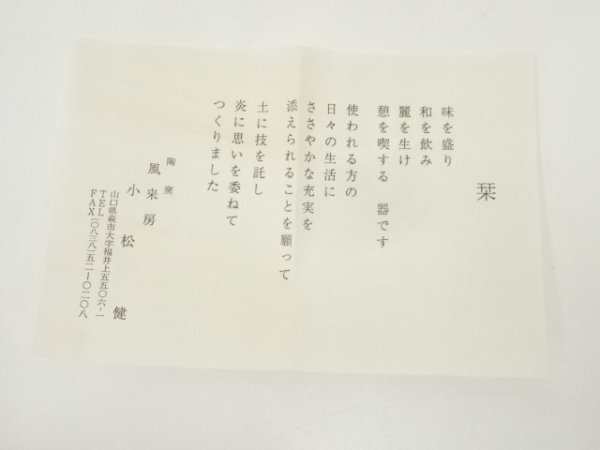 栞
味を盛り
和を飲み
麗を生け
憩を喫する　器です
使われる方の
日々の生活に
ささやかな充実を
添えられることを願って
土に技を託し
炎に思いを委ねて
つくりました
陶窯
風来房
小松　健
山口県萩市大字福井上五五〇六-一
TEL
FAX(〇八三八)五二-〇二〇八